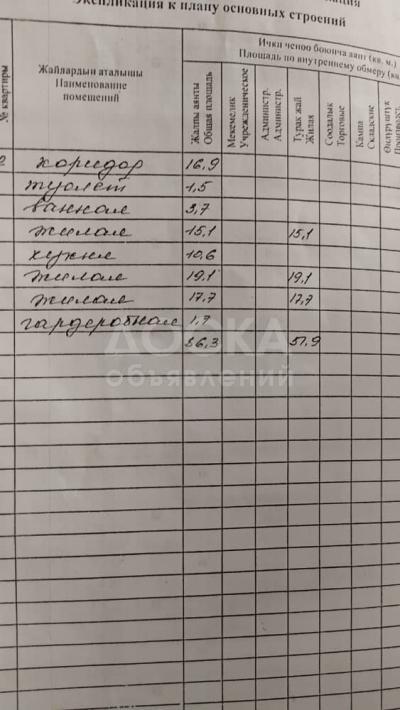 Экспликация к плану основных строений
Ички ченөө боюнча аянт (кв. м.)
Площадь по внутреннему обмеру (кв.
№ квартиры
Жайлардын аталышы
Наименование
помещений
Жалпы аянты
Общая площадь
Мекемелик
Учрежденическое
Администр.
Администр.
Турак жай
Жилая
Соодалык
Торговые
Кампа
Складские
Өндүрүштүк
Производст.
коридор 16,9
туалет 1,5
ванная 3,7
жилая 15,1 15,1
кухня 10,6
жилая 19,1 19,1
жилая 17,7 17,7
гардеробная 1,7
86,3 51,9
ДОСКА
объявлений